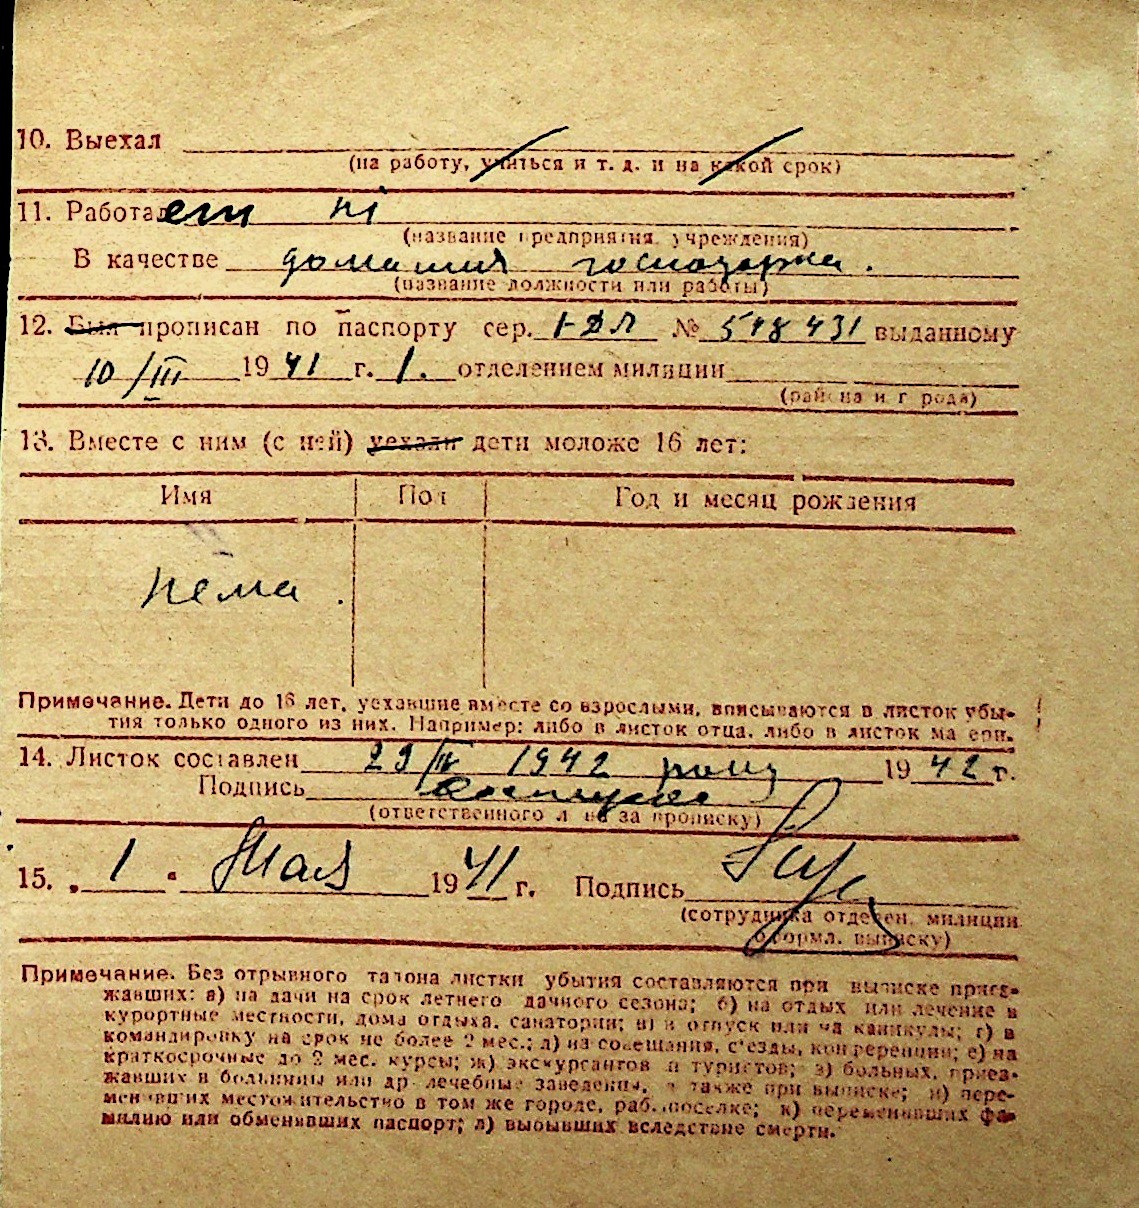 10. Выехал
(на работу, учиться и т. д. и на какой срок)
11. Работа ні
(название предприятия, учреждения)
В качестве домашня господарка.
(название должности или работы)
12. Был прописан по паспорту сер. I-ДЛ № 518431 выданному
10/III 1941 г. 1. отделением милиции
(района и города)
13. Вместе с ним (с ней) уехали дети моложе 16 лет:
Имя Пол Год и месяц рождения
нема.
Примечание. Дети до 16 лет, уехавшие вместе со взрослыми, вписываются в листок убы-
тия только одного из них. Например: либо в листок отца, либо в листок матери.
14. Листок составлен 29/IV 1942 року 1942 г.
Подпись
(ответственного лица за прописку)
15. „1" Мая 1941 г. Подпись
(сотрудника отделен. милиции
оформл. выписку)
Примечание. Без отрывного талона листки убытия составляются при выписке приез-
жавших: а) на дачи на срок летнего дачного сезона; б) на отдых или лечение в
курортные местности, дома отдыха, санатории; в) в отпуск или на каникулы; г) в
командировку на срок не более 2 мес.; д) из совещания, с'езды, конференции; е) на
краткосрочные до 2 мес. курсы; ж) экскурсантов и туристов; з) больных, приез-
жавших в больницы или др лечебные заведения, а также при выписке; и) пере-
менивших местожительство в том же городе, раб. поселке; к) переменивших фа-
милию или обменявших паспорт; л) выбывших вследствие смерти.